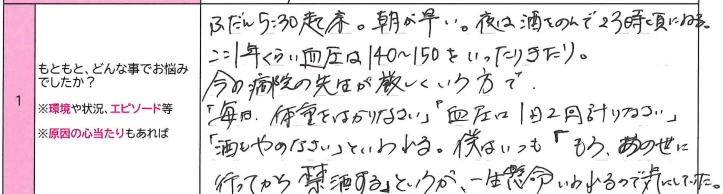 1
もともと、どんな事でお悩み
でしたか？
※環境や状況、エピソード等
※原因の心当たりもあれば
ふだん5:30起床。朝が早い。夜は酒をのんで23時頃にねる。
ここ1年くらい血圧は140～150をいったりきたり。
今の病院の先生が厳しくいう方で、
「毎日、体重をはかりなさい」「血圧は1日2回計りなさい」
「酒もやめなさい」といわれる。僕はいつも「もう、あのせに
行ってから禁酒する」というが、一生懸命いわれるので気にしていた。